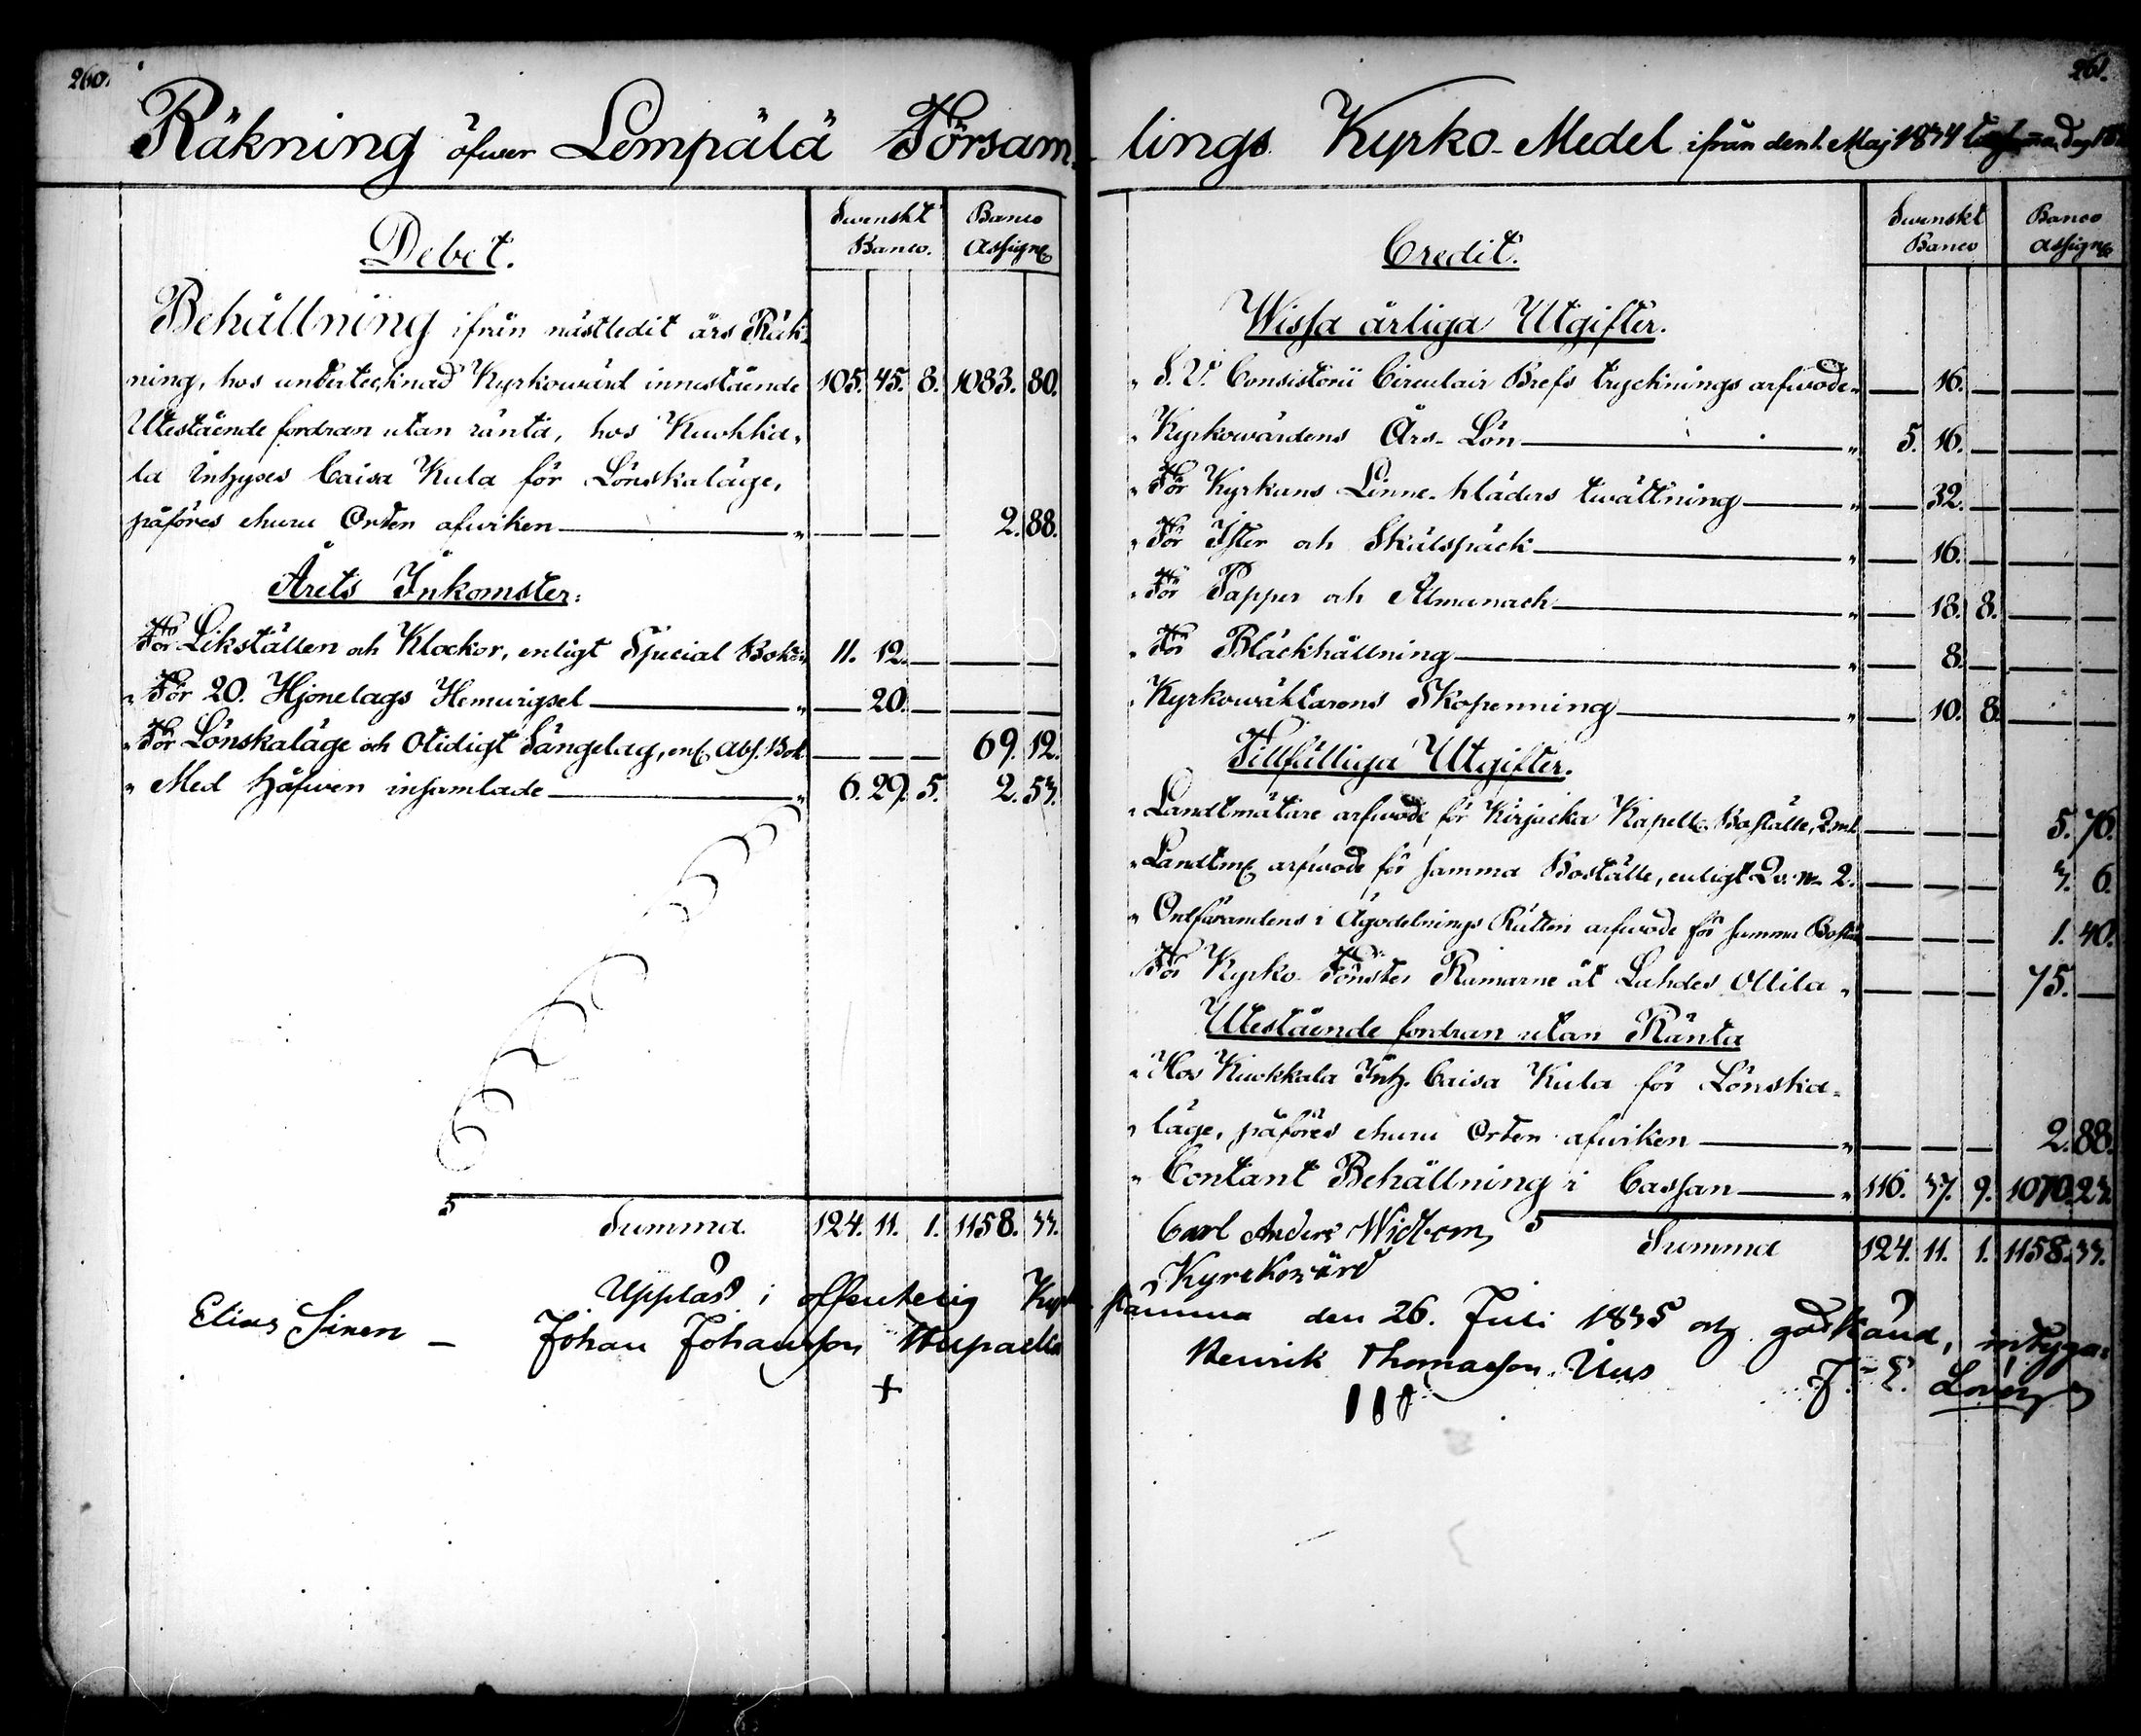 260.
Räkning öfwer Lempälä Försam-
Debet.
Swenskt Banco.
Banco Assigne
Behållning ifrån nästledit års Räk-
ning, hos undertecknad Kyrkowärd innestående 105. 45. 8. 1083. 80.
Utestående fordran utan ränta, hos Kuokka-
la Inhyses Caisa Kula för Lönskaläge,
påföres ehuru Orten afwiken — — — 2. 88.
Årets Inkomster:
För Likställen och Klockor, enligt Special Boken 11. 12. — — —
" För 20. Hjonelags Hemwigsel — 20. — — —
" För Lönskaläge och Otidigt Sängelag, enl. Abs. Bok — — — 69. 12.
" Med Håfwen insamlade 6. 29. 5. 2. 53.
Summa 124. 11. 1. 1158. 33.
Uppläst i offentelig Kyrko
Elias Siren — Johan Johansson
+
261.
lings Kyrko-Medel ifrån den 1. Maj 1834
Credit.
Swenskt Banco
Banco Assigne
Wissa årliga Utgifter.
" S. V. Consistorii Circulair Brefs trycknings arfwode — 16. — — —
" Kyrkowärdens Års-Lön 5. 16. — — —
" För Kyrkans Linne-kläders twättning — 32. — — —
" För Ister och Skälspäck — 16. — — —
" För Papper och Almanach — 18. 8. — —
" För Bläckhållning — 8. — — —
" Kyrkowäktarens Skopenning — 10. 8. — —
Tillfälliga Utgifter.
" Landtmätare arfwode för Kirjacka Kapell. Boställe, — — — 5. 76.
" Landtm. arfwode för samma Boställe, enligt Qv. No 2. — — — 3. 6.
" Ordförandens i Ägodelnings Rätten arfwode för samma Boställe — — — 1. 40.
För Kyrko-Fönster Ramarne åt Lahdes Ollila " — — — 75. —
Utestående fordran utan Ränta
" Hos Kuokkala Inh. Caisa Kula för Lönska-
" läge, påföres ehuru Orten afwiken — — — 2. 88.
" Contant Behållning i Cassan 116. 37. 9. 1070. 23.
Carl Anders Widbom, Summa 124. 11. 1. 1158. 33.
Kyrckowärd
stämma den 26. Juli 1835 och godkänd, intygar
Henrik Thomasson Uus J. E.